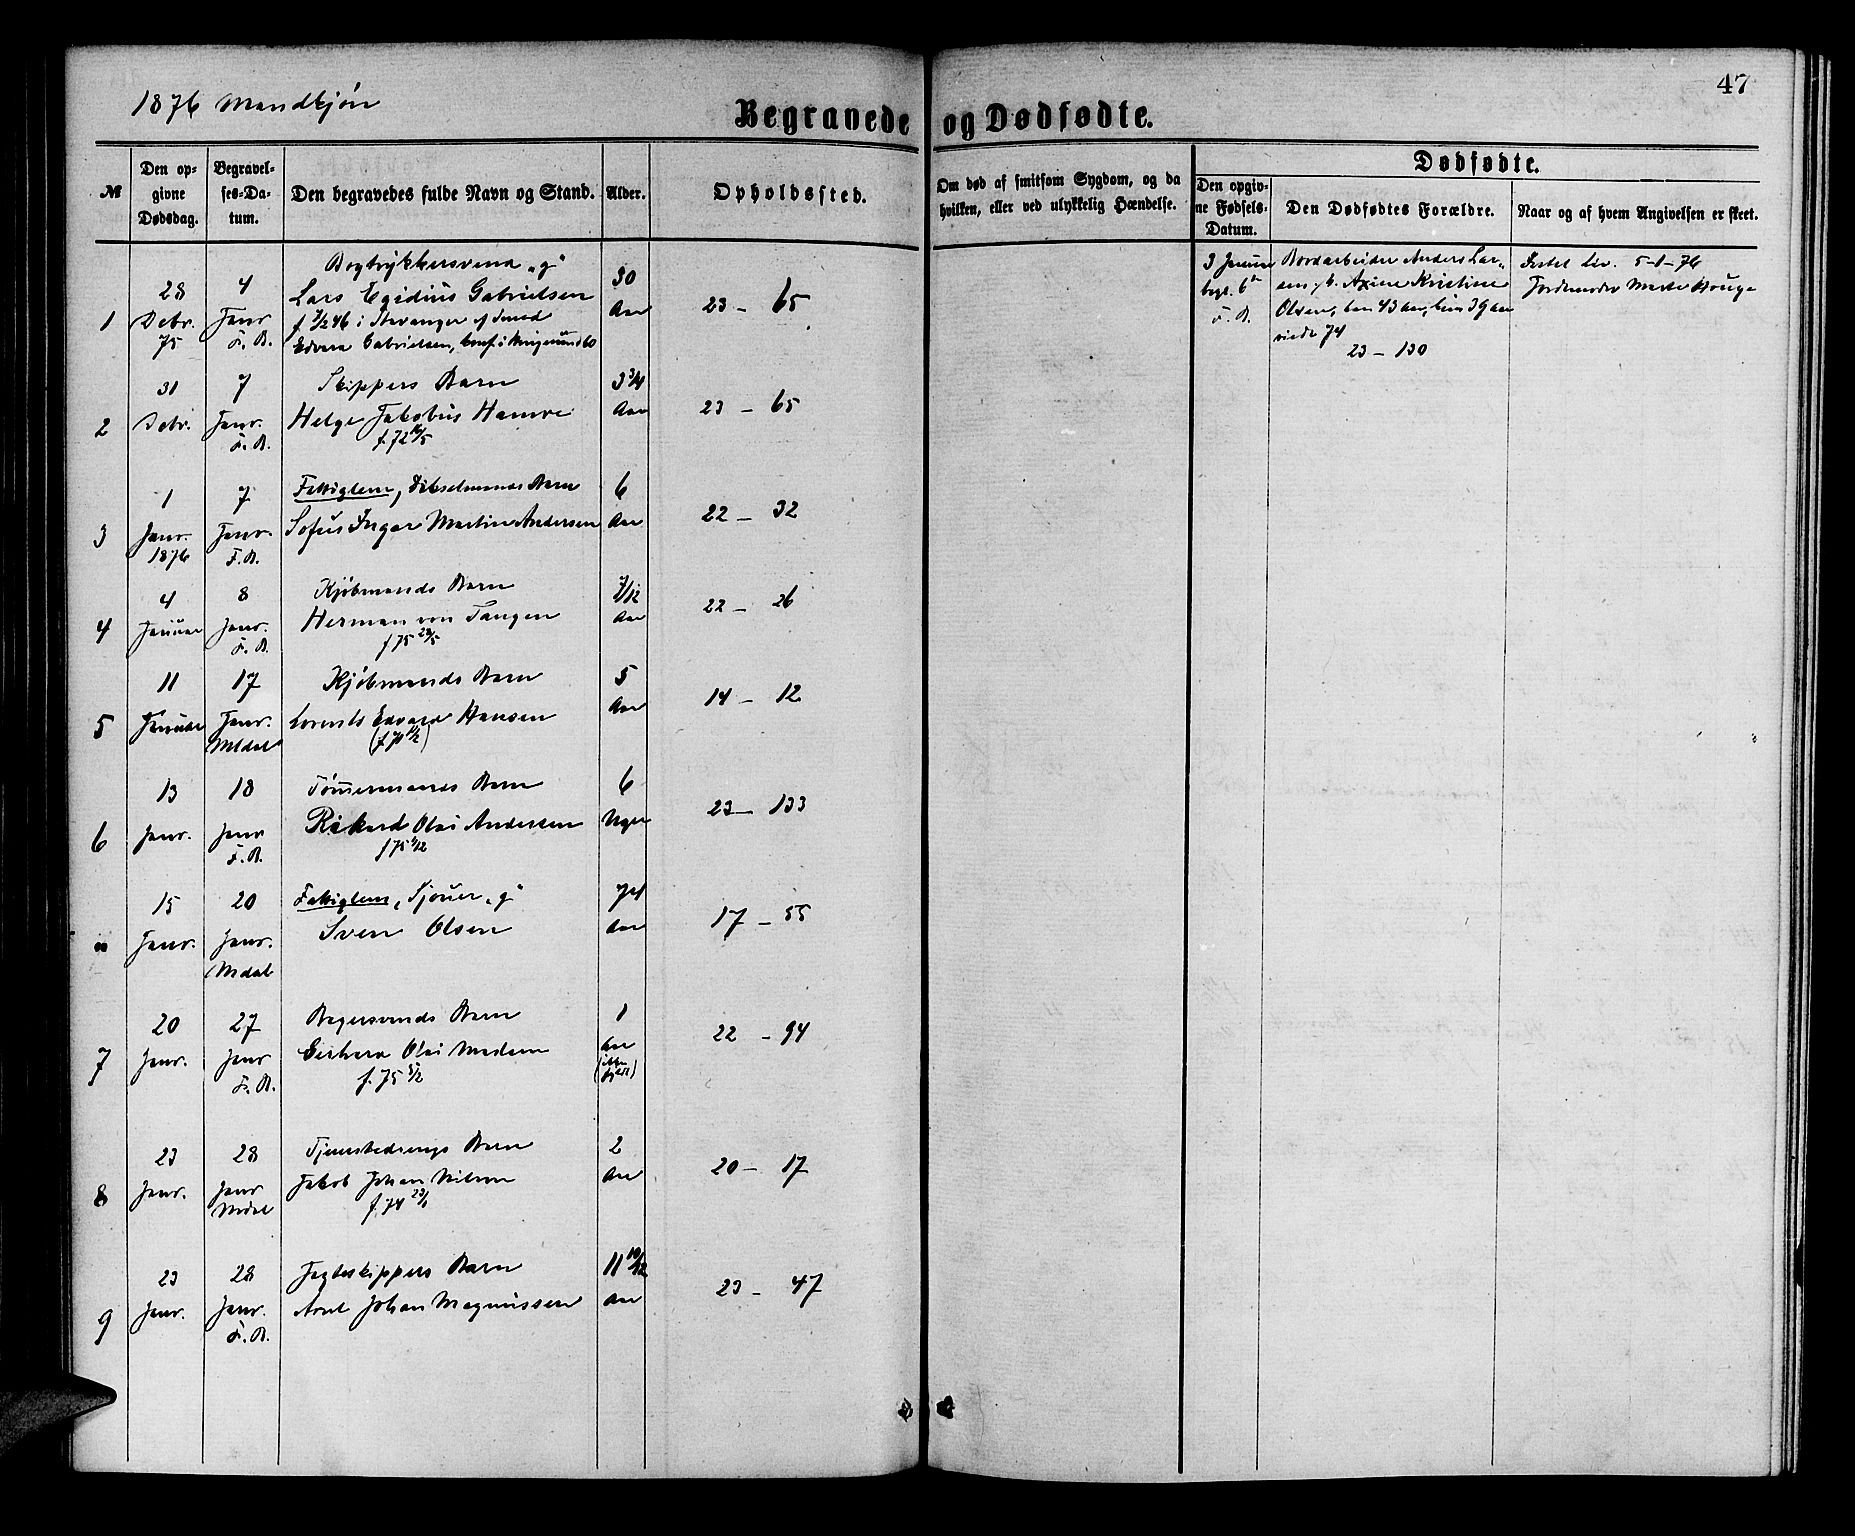 1876 Mandkjön
47
Begravede og Dødfødte.
№
Den opgivne Dødsdag.
Begravelses-Datum.
Den begravedes fulde Navn og Stand.
Alder.
Opholdssted.
Om død af smitsom Sygdom, og da hvilken, eller ved ulykkelig Hændelse.
Dødfødte.
Den opgivne Fødsels-Datum.
Den Dødfødtes Forældre.
Naar og af hvem Angivelsen er skeet.
1 28 Debr. 75 4 Janr. F. B. Bogtrykkersvend „g“ 30 Aar 23 – 65
Lars Egidius Gabrielsen
f 7/2 46 i Stavanger af Smed
Edvard Gabrielsen,
3 Januar begl. 6te F. B.
Bordarbeider Anders Lar-
sen, h. Axine Kristine
Olsen, han 43 aar, hun 39 aar
viede 74
23 – 130
5-1-76
Jordemoder Marte Houge
2 31 Debr. 7 Janr. F. B. Skippers Barn 3 3/4 Aar 23 – 65
Helge Jakobus Hamre
f. 72 16/5
3 1 Janr. 1876 7 Janr. F. B. Fattiglem, Barn 6 Aar 22 – 32
Sofus Ingar Martin Andersen
4 4 Januar 8 Janr. F. B. Kjöbmands Barn 7/12 Aar 22 – 26
Herman von Tangen
f 75 28/5
5 11 Januar 17 Janr. Mdal Kjöbmands Barn 5 Aar 14 – 12
Lorents Edvard Hansen
(f. 70 14/2)
6 13 Janr. 18 Janr. F. B. Tömmermands Barn 6 Uger 23 – 133
Rikard Olai Andersen
f 75 /12
" 15 Janr. 20 Janr. Mdal Fattiglem, Sjouer „g“ 74 Aar 17 – 55
Sven Olsen
7 20 Janr. 27 Janr. F. B. Bagersvends Barn 1 Aar (ikke fyldt) 22 – 94
Gerhard Olai Madsen
f. 75 5/2
8 23 Janr. 28 Janr. Mdal Tjenestedrengs Barn 2 Aar 20 – 17
Jakob Johan Nilsen
f. 74 23/1
9 23 Janr. 28 Janr. F. B. Jagteskippers Barn 11 10/12 Aar 23 – 47
Arnt Johan Magnussen